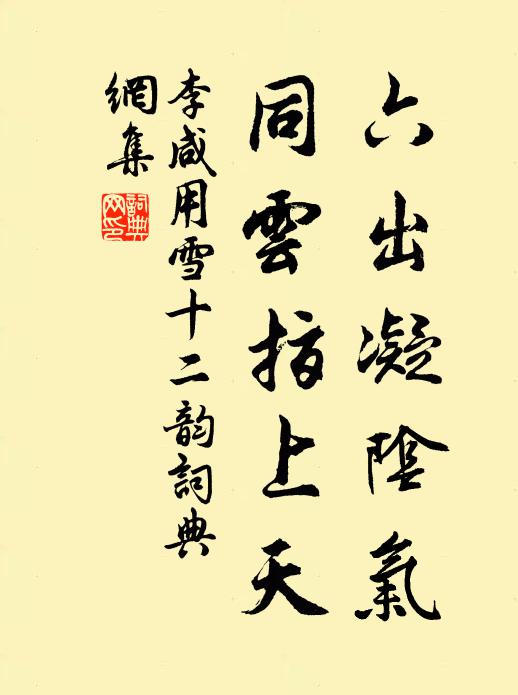 六出凝陰氣
同雲指上天
李咸用雪十二韵詞典
網集
詞典
网印